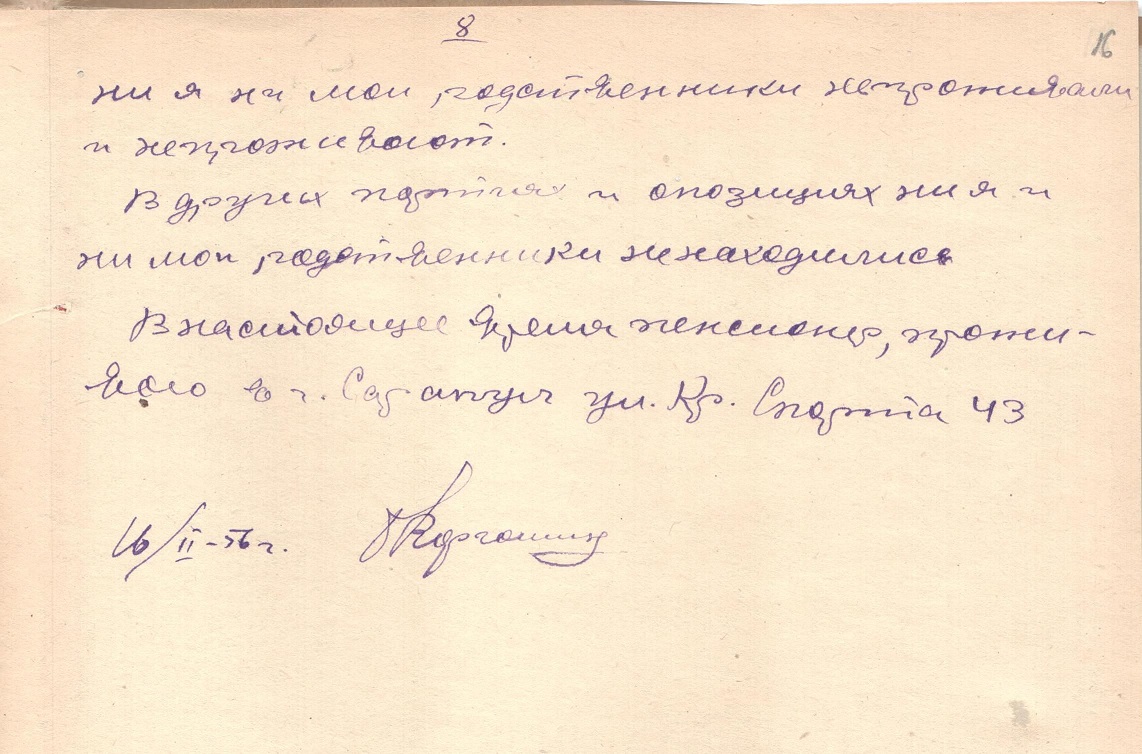 8
16
ни я ни мои родственники непроживали
и непроживают.
В других партиях и опозициях ни я и
ни мои родственники ненаходились
В настоящее время пенсионер, прожи-
ваю в г. Сарапул ул. Кр. Спорта 43
16/II-56 г.